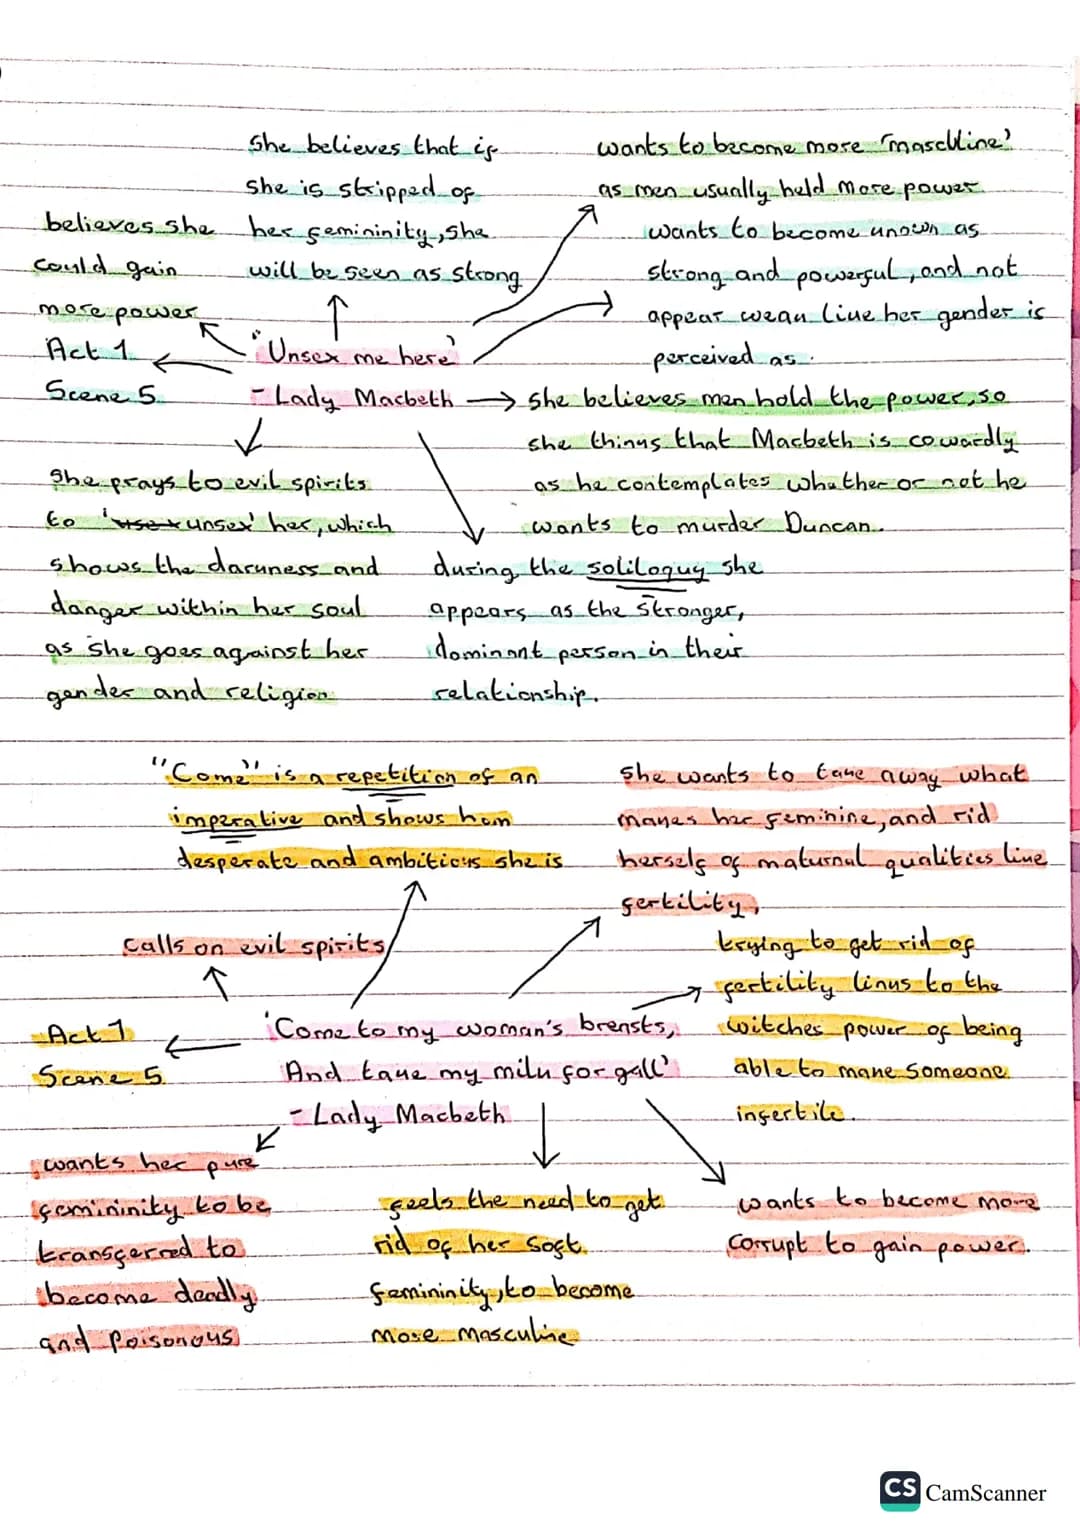 She believes that if
she is stripped of
her femininity, she
will be seen as strong
wants to become more 'masculine'
as men usually held more power
wants to become known as
strong and powerful, and not
appear weak like her gender is
perceived as.
believes she
could gain
more power
Act 1
Scene 5
"Unsex me here"
- Lady Macbeth
she believes men hold the power, so
she thinks that Macbeth is cowardly
as he contemplates whether or not he
wants to murder Duncan.
She prays to evil spirits
to 'unsex' her, which
shows the darkness and
danger within her soul
as she goes against her
gender and religion
during the soliloquy she
appears as the stronger,
dominant person in their
relationship.
"Come" is a repetition of an
imperative and shows how
desperate and ambitious she is
she wants to take away what
makes her feminine, and rid
herself of maturnal qualities like
fertility,
calls on evil spirits
trying to get rid of
fertility links to the
witches power of being
able to make someone
infertile.
Act 1
Scene 5
'Come to my woman's breasts,
And take my milk for gall'
- Lady Macbeth
wants her pure
femininity to be
transferred to
become deadly
and poisonous
feels the need to get
rid of her soft
femininity, to become
more masculine
wants to become more
corrupt to gain power.
CS CamScanner